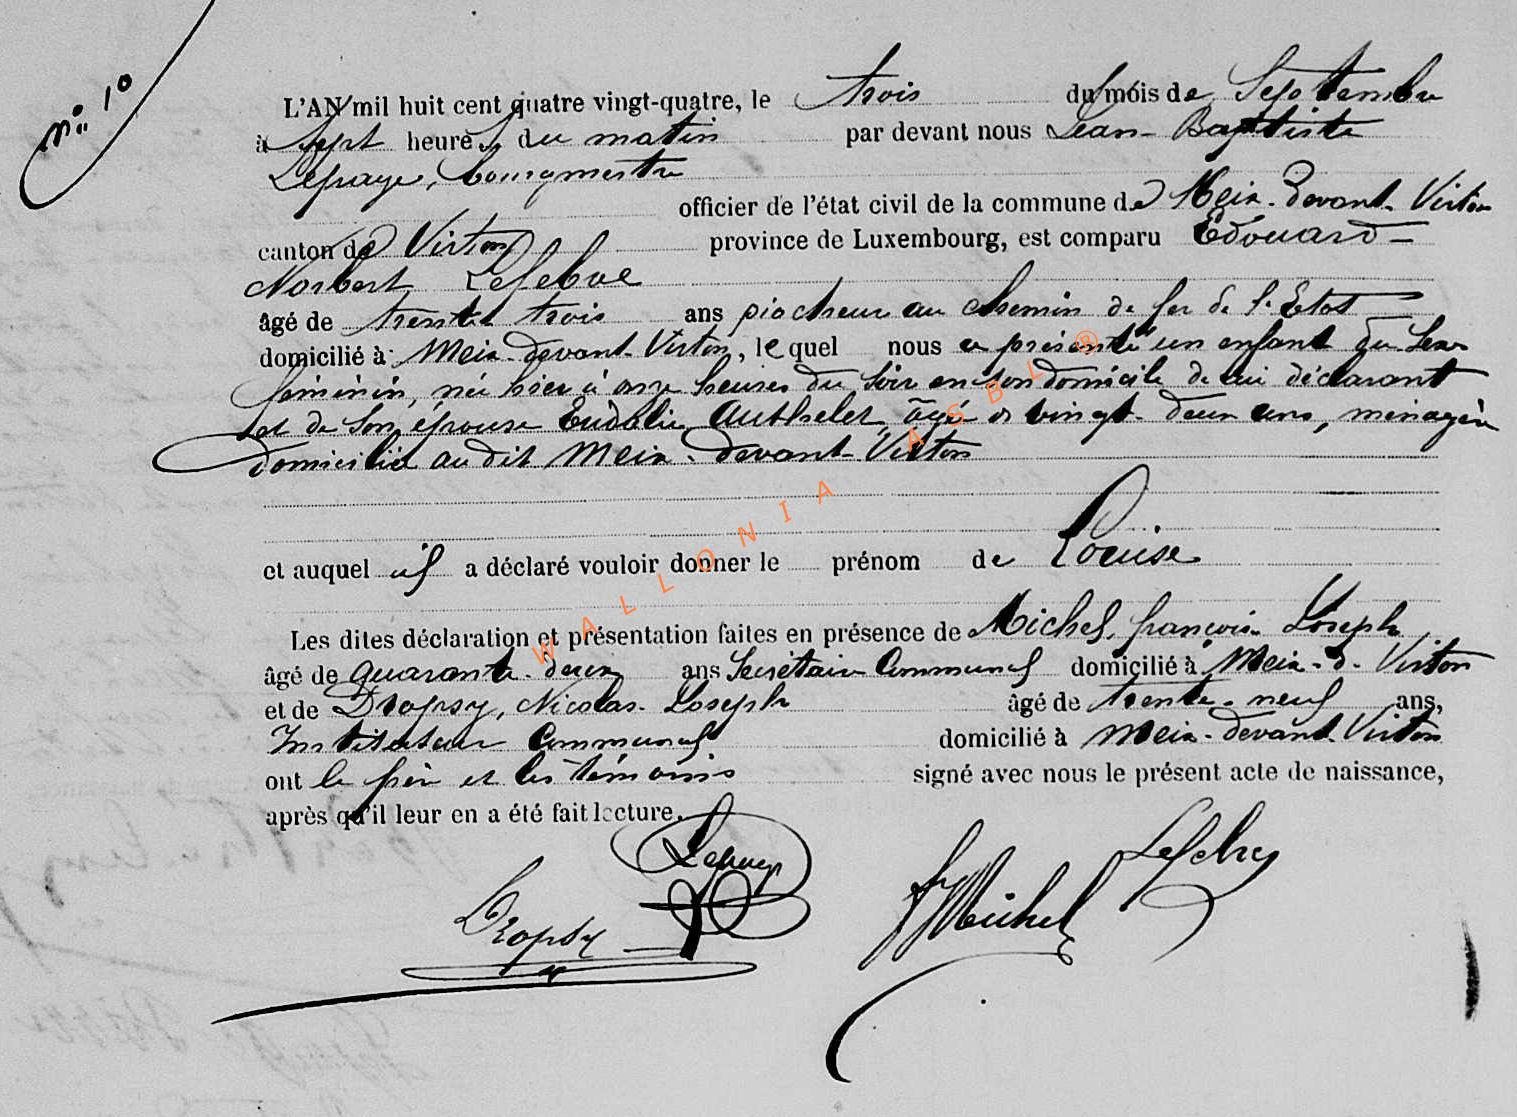 N° 10
L'AN mil huit cent quatre vingt-quatre, le trois du mois de Septembre
à sept heures du matin par devant nous Jean-Baptiste
Lepage, bourgmestre
officier de l'état civil de la commune de Meix-devant-Virton
canton de Virton province de Luxembourg, est comparu Edouard-
Norbert Lefebve
âgé de trente trois ans piocheur au chemin de fer de l'Etat
domicilié à Meix-devant-Virton, lequel nous a présenté un enfant du sexe
féminin, née hier à onze heures du soir en son domicile de lui déclarant
et de son épouse Eudolie Authelet, âgé de vingt-deux ans, ménagère
domiciliée audit Meix-devant-Virton
et auquel il a déclaré vouloir donner le prénom de Louise
Les dites déclaration et présentation faites en présence de Michel, françois-Joseph
âgé de quarante-deux ans Secrétaire Communal domicilié à Meix-d-Virton
et de Dropsy, Nicolas-Joseph âgé de trente-neuf ans,
Instituteur Communal domicilié à Meix-devant-Virton
ont le père et les témoins signé avec nous le présent acte de naissance,
après qu'il leur en a été fait lecture.
Lepage Lefebve
Dropsy f Michel
WALLONIA ASBL ®